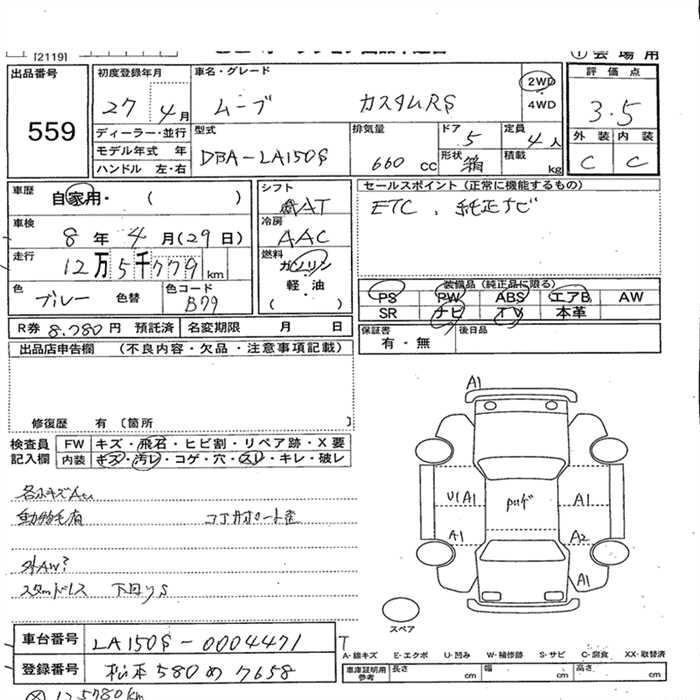 [2119]
① 会場用
出品番号
559
初度登録年月
27 4月
ディーラー・並行
モデル年式 年
ハンドル 左・右
車名・グレード
ムーブ カスタムRS
2WD
4WD
型式
DBA-LA150S
排気量
660 CC
ドア 5
形状 箱
定員 4人
積載 kg
評価点
3.5
外装 内装
C C
車歴
自家用・( )
車検
8年 4月(29日)
走行
12万5千779 km
色
ブルー 色替
色コード
B79
シフト
AT
冷房
AAC
燃料
ガソリン
軽・油
( )
セールスポイント(正常に機能するもの)
ETC、純正ナビ
装備品(純正品に限る)
PS PW ABS エアB AW
SR ナビ TV 本革
R券 8.780円 預託済 名変期限 月 日
保証書
有・無
後日品
出品店申告欄 (不良内容・欠品・注意事項記載)
修復歴 有〔箇所 〕
検査員
記入欄
FW キズ・飛石・ヒビ割・リペア跡・X要
内装 キズ・汚レ・コゲ・穴・スレ・キレ・破レ
動物毛有
外AW?
スタッドレス 下回りS
A1
U1 A1
A1
A1
A2
A1
スペア
車台番号 LA150S-0004471
登録番号 松本 580 め 7658
A・線キズ E・エクボ U・凹み W・補修跡 S・サビ C・腐食 XX・取替済
車庫証明用
参考
長さ cm 幅 cm 高さ cm